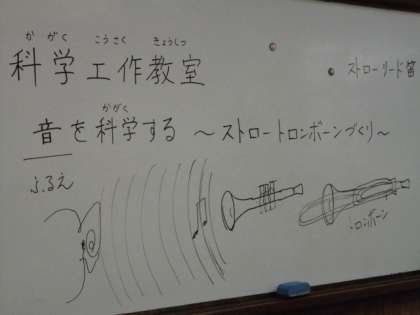 かがく こうさく きょうしつ
科学工作教室
ストローリード笛
かがく
音を科学する ～ストロートロンボーンづくり～
ふるえ
トロンボーン